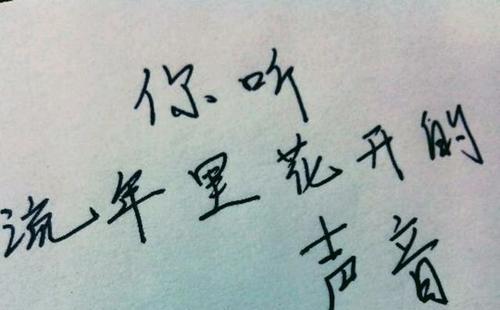 你听
流年里花开的
声音